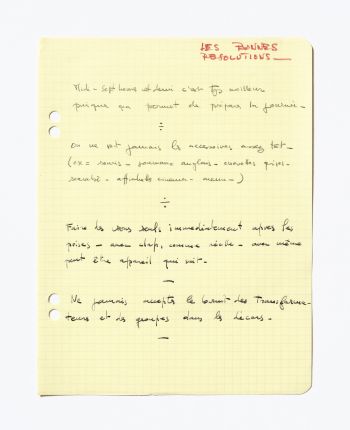 LES BONNES
RESOLUTIONS -
Midi - sept heures et demi c'est meilleur
puisque ça permet de préparer la journée -
÷
on ne voit jamais les accessoires assez tôt -
(ex = souris - journaux anglais - cravates grises -
÷
Faire les sons seuls immédiatement après les
prises - avec clap, comme réelle - avec même
peut être appareil qui suit -
-
Ne jamais accepter le bruit des transforma-
teurs et des groupes dans les décors -
-